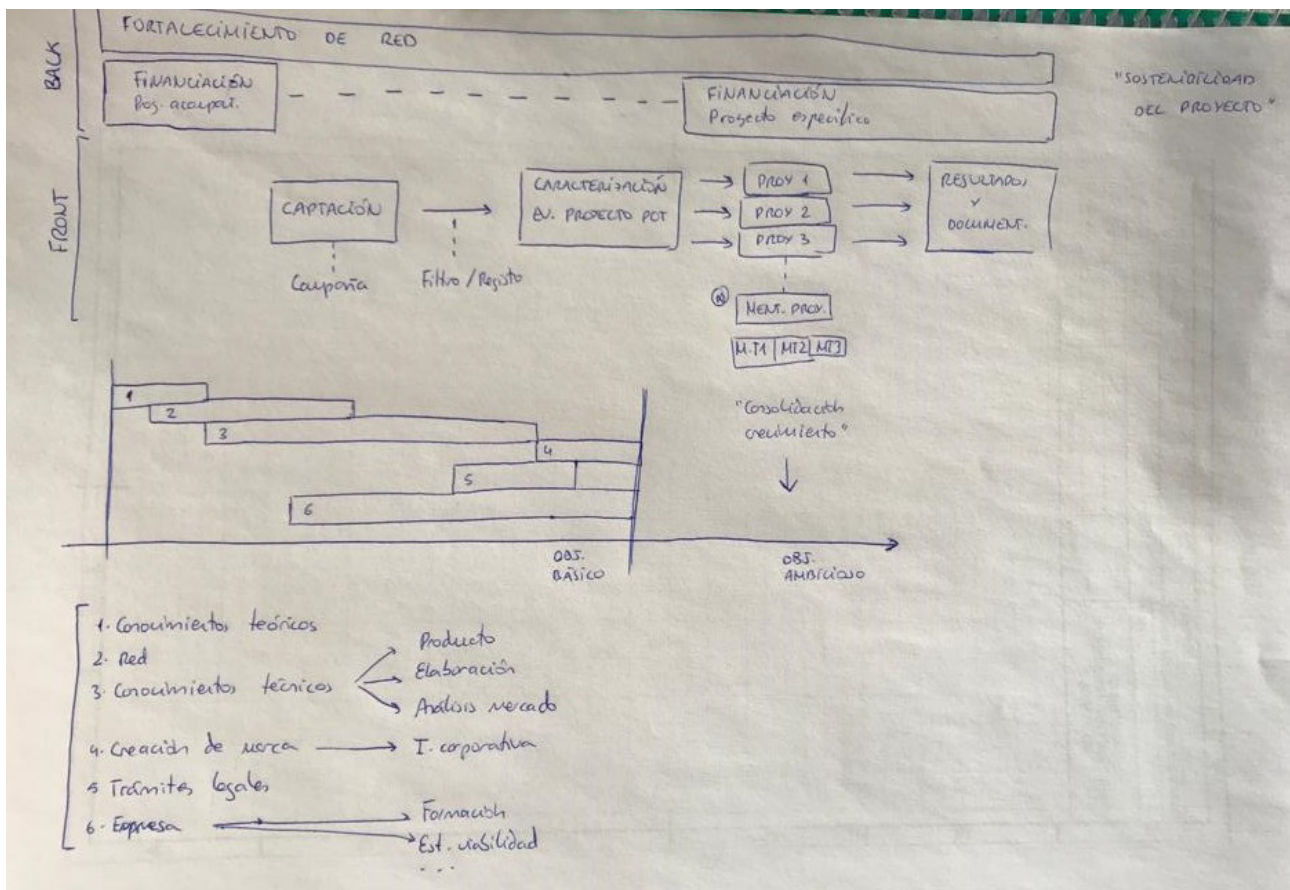 BACK
FORTALECIMIENTO DE RED
FINANCIACIÓN
FINANCIACIÓN
Proyecto específico
"SOSTENIBILIDAD
DEL PROYECTO"
FRONT
CAPTACIÓN
Campaña
Filtro / Registo
CARACTERIZACIÓN
EV. PROYECTO POT
PROY 1
PROY 2
PROY 3
RESULTADOS
Y
DOCUMENT.
MENT. PROY.
M.T1 MT2 MT3
"Consolidación
crecimiento"
1
2
3
4
5
6
OBJ.
BÁSICO
OBJ.
AMBICIOSO
1. Conocimientos teóricos
2. Red
3. Conocimientos técnicos
Producto
Elaboración
Análisis mercado
4. Creación de marca
I. corporativa
5 Trámites legales
6. Empresa
Formación
Est. viabilidad
...